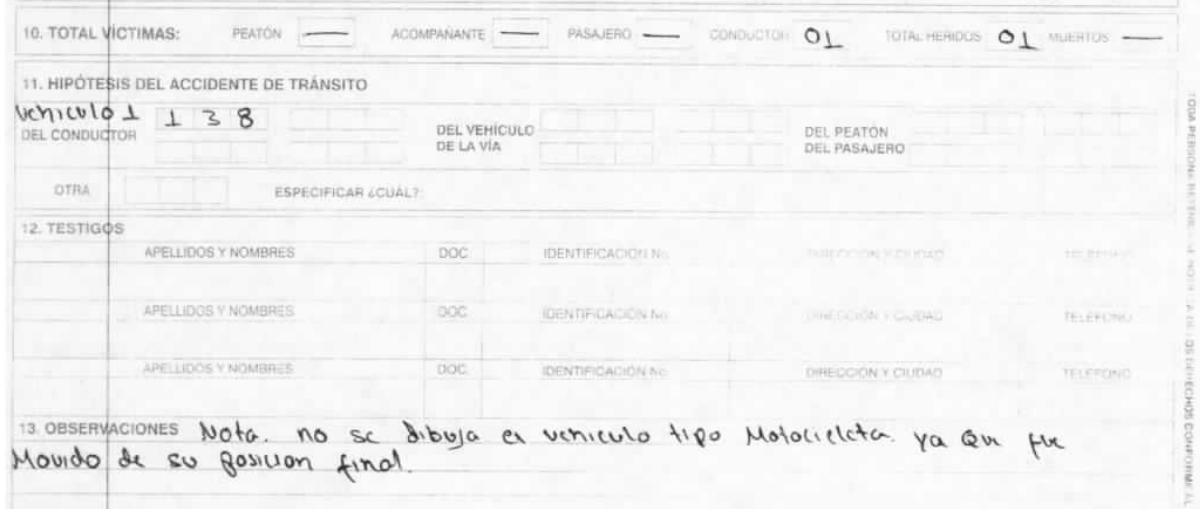 10. TOTAL VÍCTIMAS: PEATÓN — ACOMPAÑANTE — PASAJERO — CONDUCTOR 01 TOTAL HERIDOS 01 MUERTOS —
11. HIPÓTESIS DEL ACCIDENTE DE TRÁNSITO
Vehiculo 1 1 3 8
DEL CONDUCTOR DEL VEHÍCULO DEL PEATÓN
DE LA VÍA DEL PASAJERO
OTRA ESPECIFICAR ¿CUÁL?:
12. TESTIGOS
APELLIDOS Y NOMBRES DOC. IDENTIFICACIÓN No. DIRECCIÓN Y CIUDAD TELÉFONO
APELLIDOS Y NOMBRES DOC. IDENTIFICACIÓN No. DIRECCIÓN Y CIUDAD TELÉFONO
APELLIDOS Y NOMBRES DOC. IDENTIFICACIÓN No. DIRECCIÓN Y CIUDAD TELÉFONO
13. OBSERVACIONES Nota. no se dibuja el vehiculo tipo Motocicleta. ya Que fue
Movido de su posicion final.